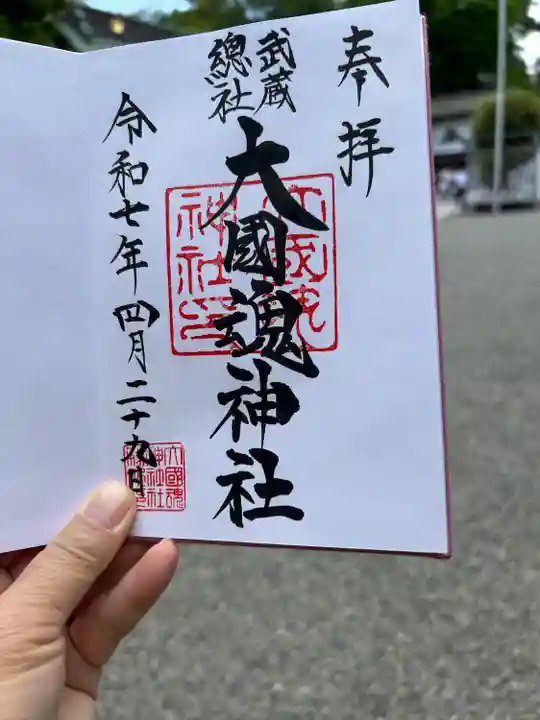 奉拝
武蔵
總社
大國魂神社
令和七年四月二十九日
大國魂
神社